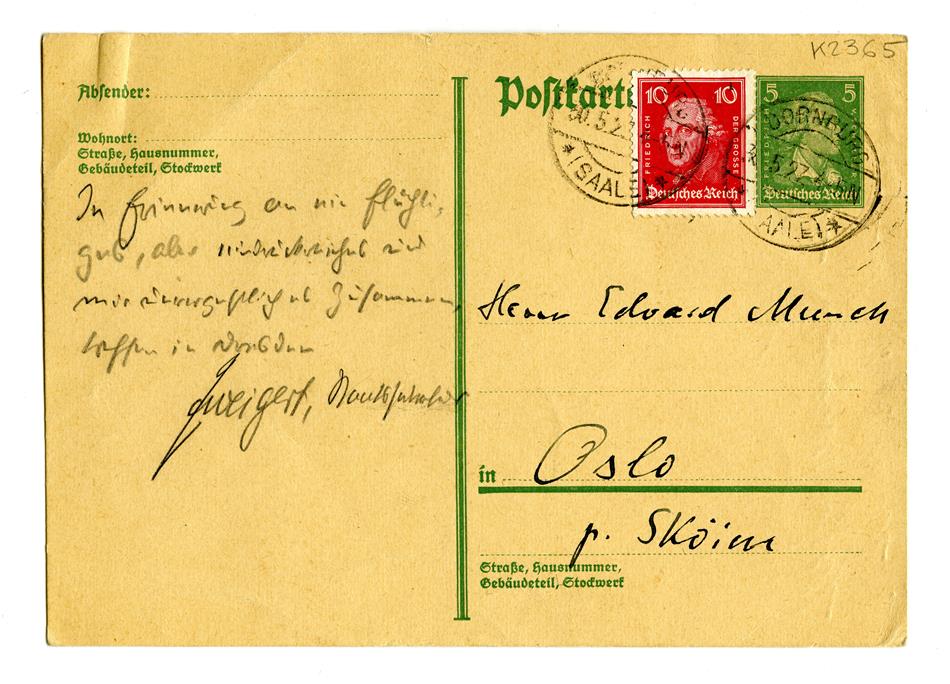 K2365
Absender:
Postkarte
10 10
FRIEDRICH DER GROSSE
Deutsches Reich
5 5
Deutsches Reich
DORNBURG
(SAALE)
Wohnort:
Straße, Hausnummer,
Gebäudeteil, Stockwerk
In Erinnerung an ein flüchti-
ges, aber eindrückliches und
mir unvergeßliches Zusammen-
treffen in Dresden
Zweigert, Staatssekretär
Herrn Edvard Munch
in Oslo
p. Sköien
Straße, Hausnummer,
Gebäudeteil, Stockwerk